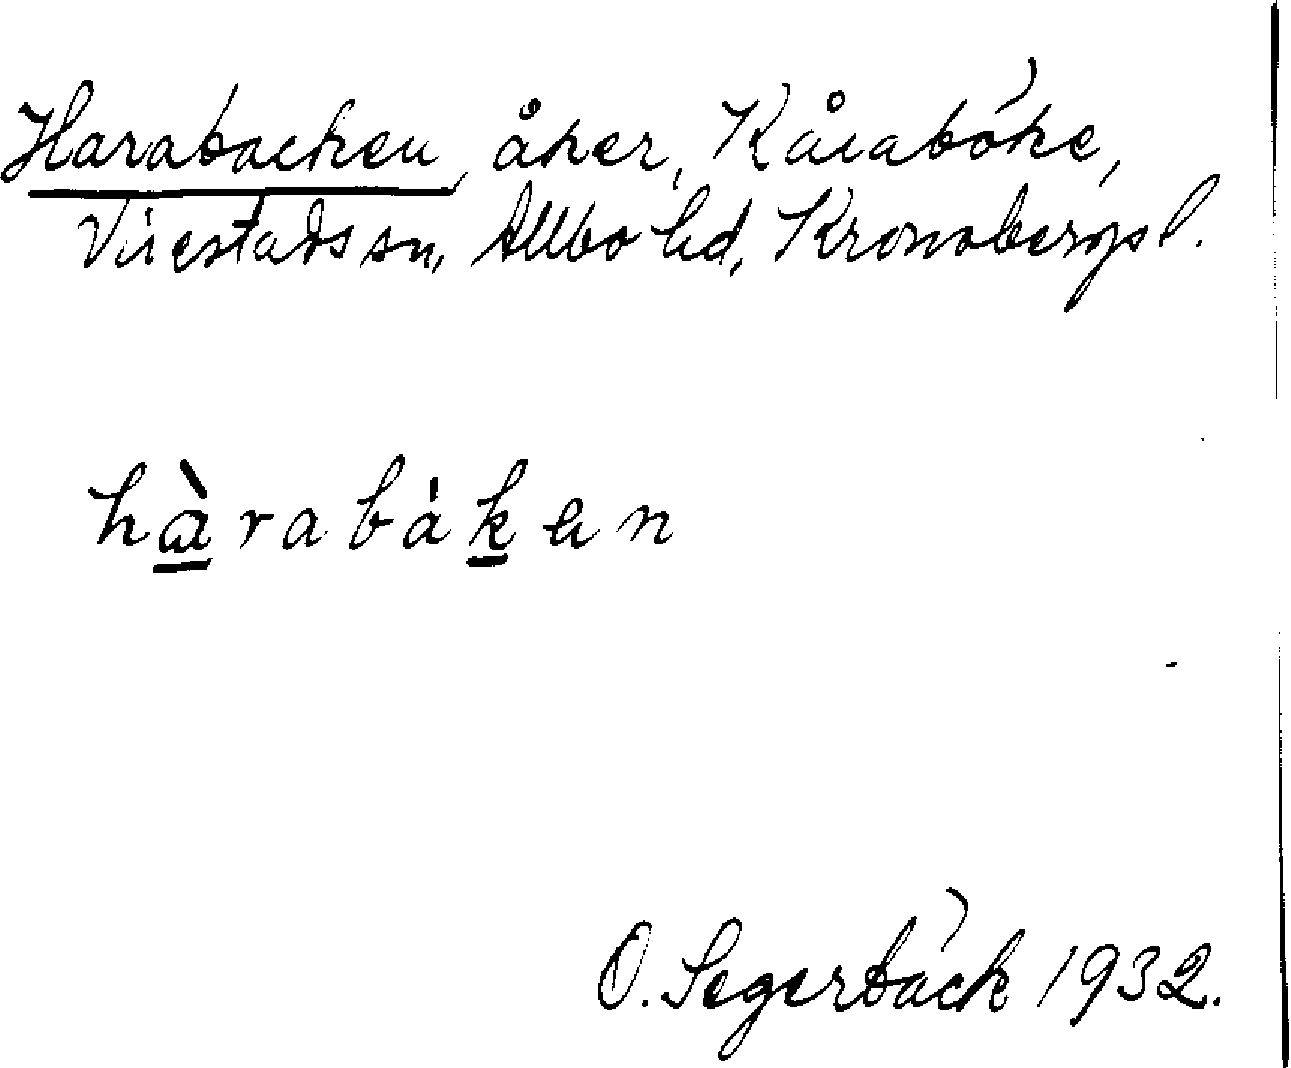 Harabacken, åker, Kåraböke,
Virestads sn, Allbo hd, Kronobergs l.
hàrabákan
O. Segerbäck 1932.